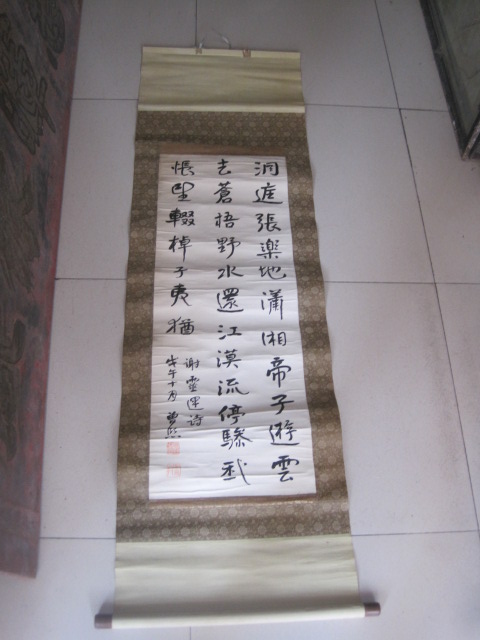 洞庭張樂地瀟湘帝子遊雲
去蒼梧野水還江漢流停驂我
悵望輟棹子夷猶
謝靈運詩
戊午十月 曾熙